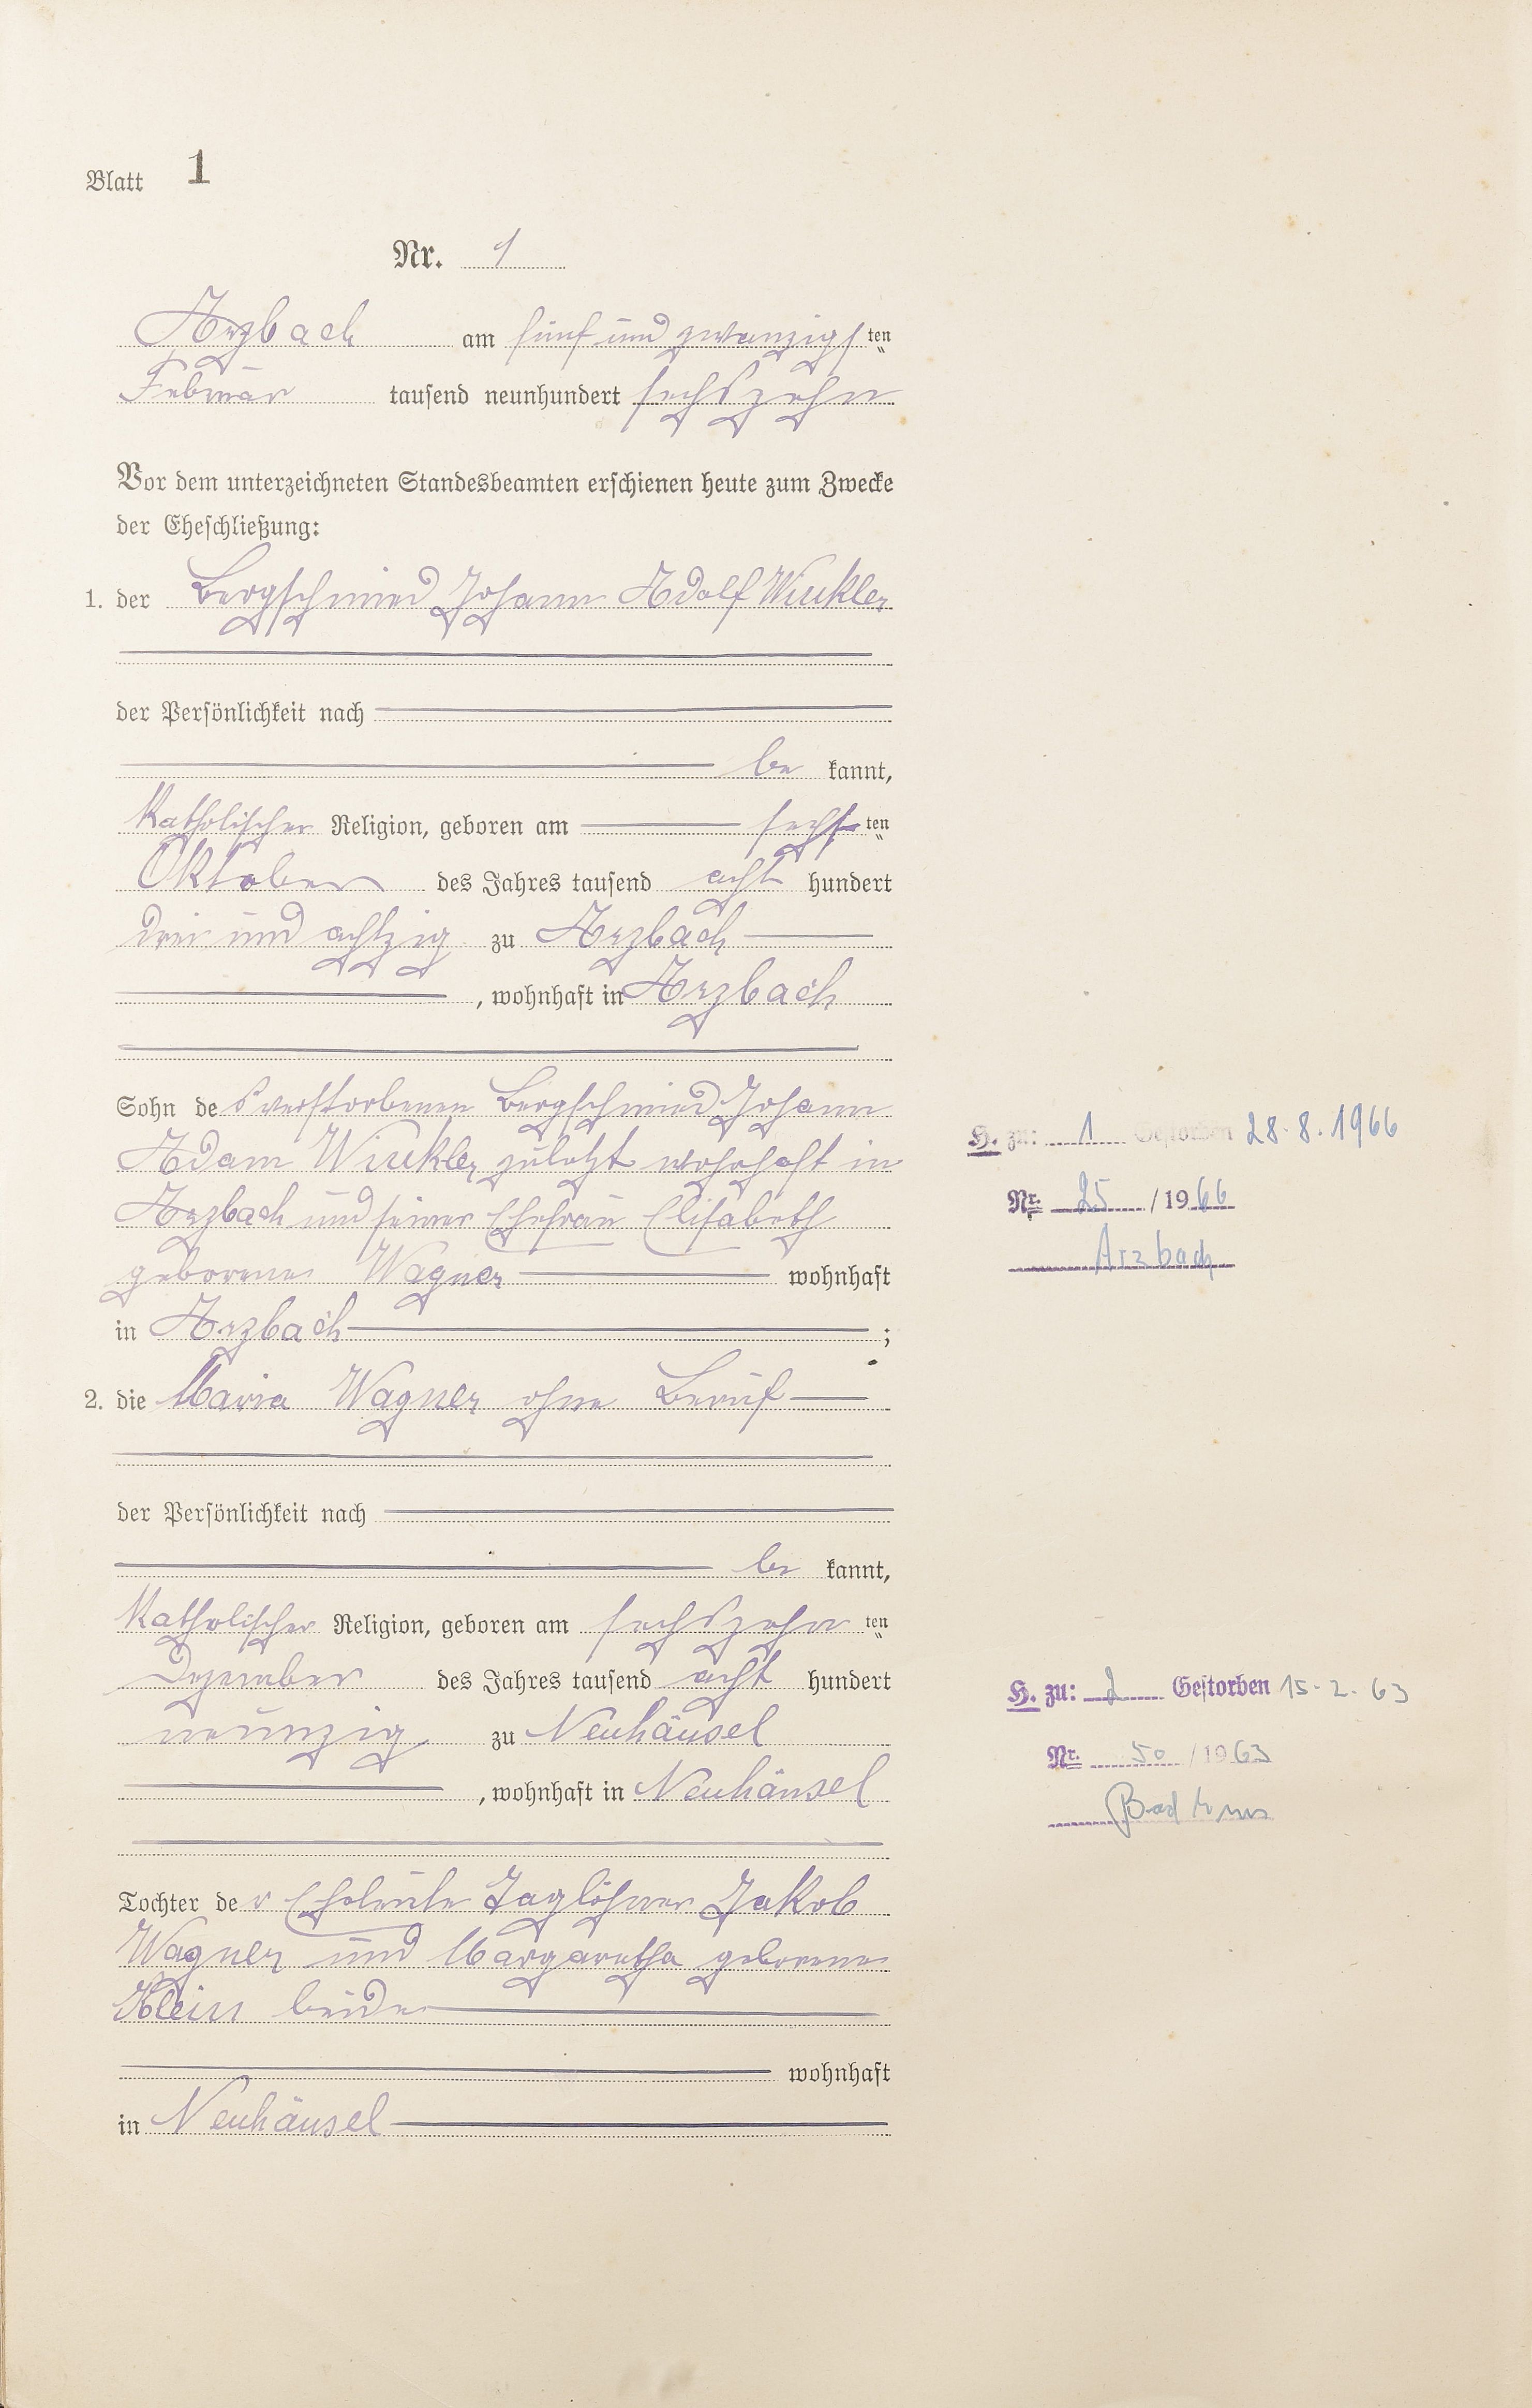 Blatt 1
Nr. 1
Arzbach am fünf und zwanzigsten
Februar tausend neunhundert sechszehn
Vor dem unterzeichneten Standesbeamten erschienen heute zum Zwecke
der Eheschließung:
1. der Bergschmied Johann Adolf Winkler
der Persönlichkeit nach
be kannt,
Katholischer Religion, geboren am sechsten
Oktober des Jahres tausend acht hundert
drei und achtzig zu Arzbach
, wohnhaft in Arzbach
Sohn des verstorbenen Bergschmied Johann
Adam Winkler zuletzt wohnhaft in
Arzbach und seiner Ehefrau Elisabeth
geborene Wagner wohnhaft
in Arzbach ;
2. die Maria Wagner ohne Beruf
der Persönlichkeit nach
be kannt,
Katholischer Religion, geboren am sechszehn ten
Dezember des Jahres tausend acht hundert
neunzig zu Neuhäusel
, wohnhaft in Neuhäusel
Tochter der Eheleute Taglöhner Jakob
Wagner und Margaretha geborene
Klein beide
wohnhaft
in Neuhäusel
H. zu: 1 Gestorben 28.8.1966
Nr. 25 / 1966
Arzbach
H. zu: 2 Gestorben 15-2-63
Nr. 50 / 1963
Bad Ems